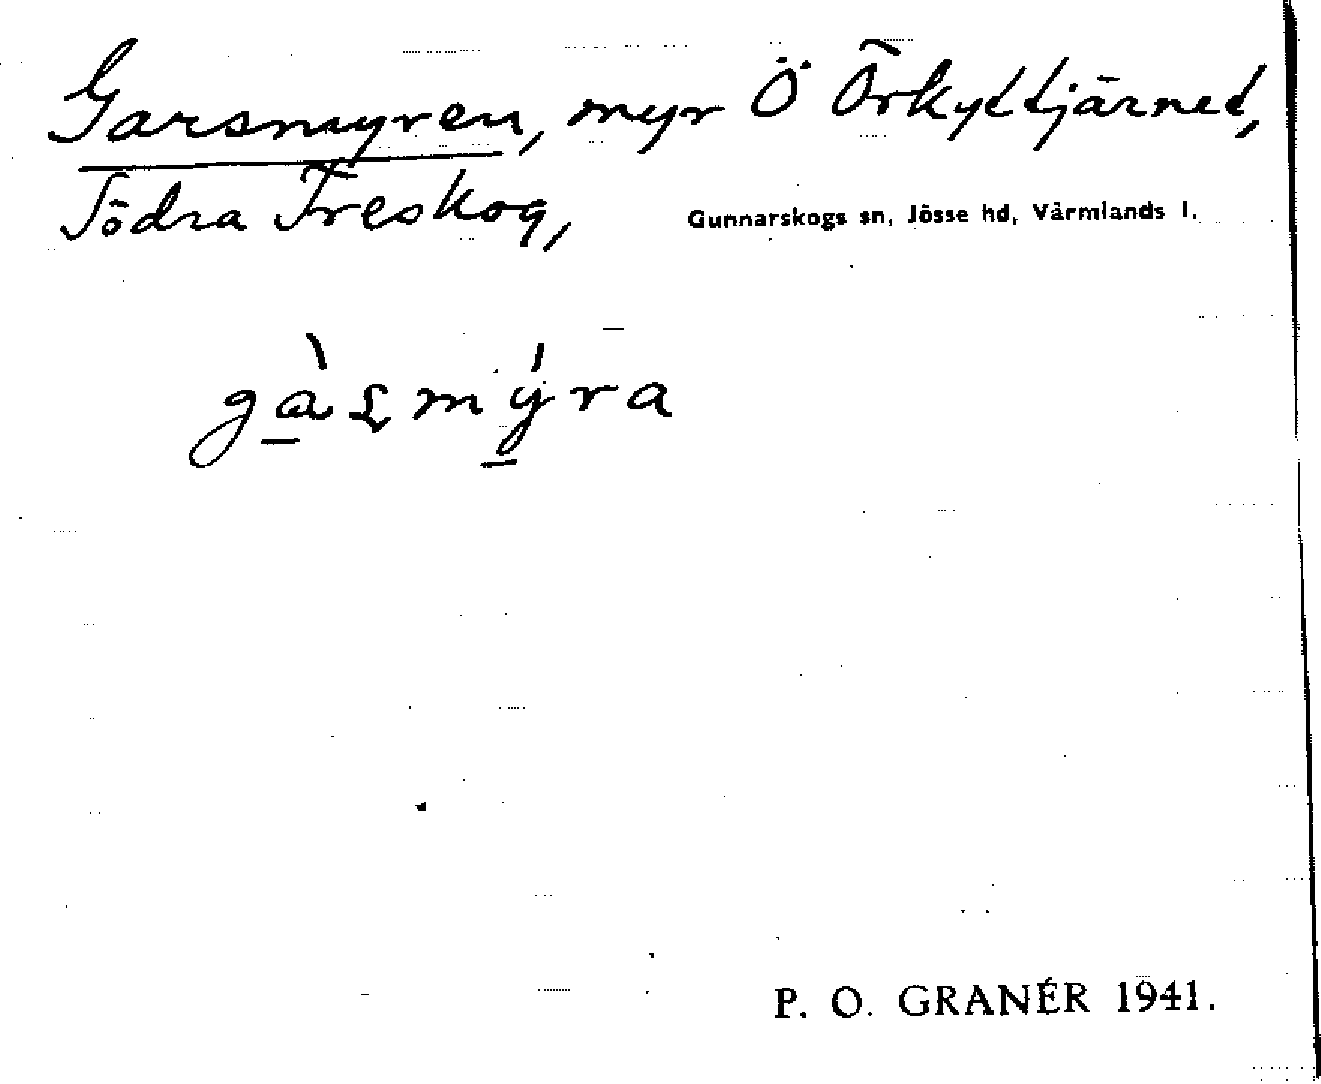 Garsmyren, myr Ö Örkyttjärnet,
Södra Treskog, Gunnarskogs sn, Jösse hd, Värmlands l.
P. O. GRANÉR 1941.